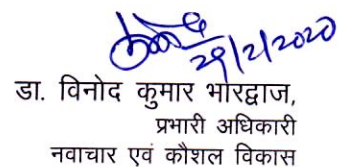 29/2/2020
डा. विनोद कुमार भारद्वाज,
प्रभारी अधिकारी
नवाचार एवं कौशल विकास